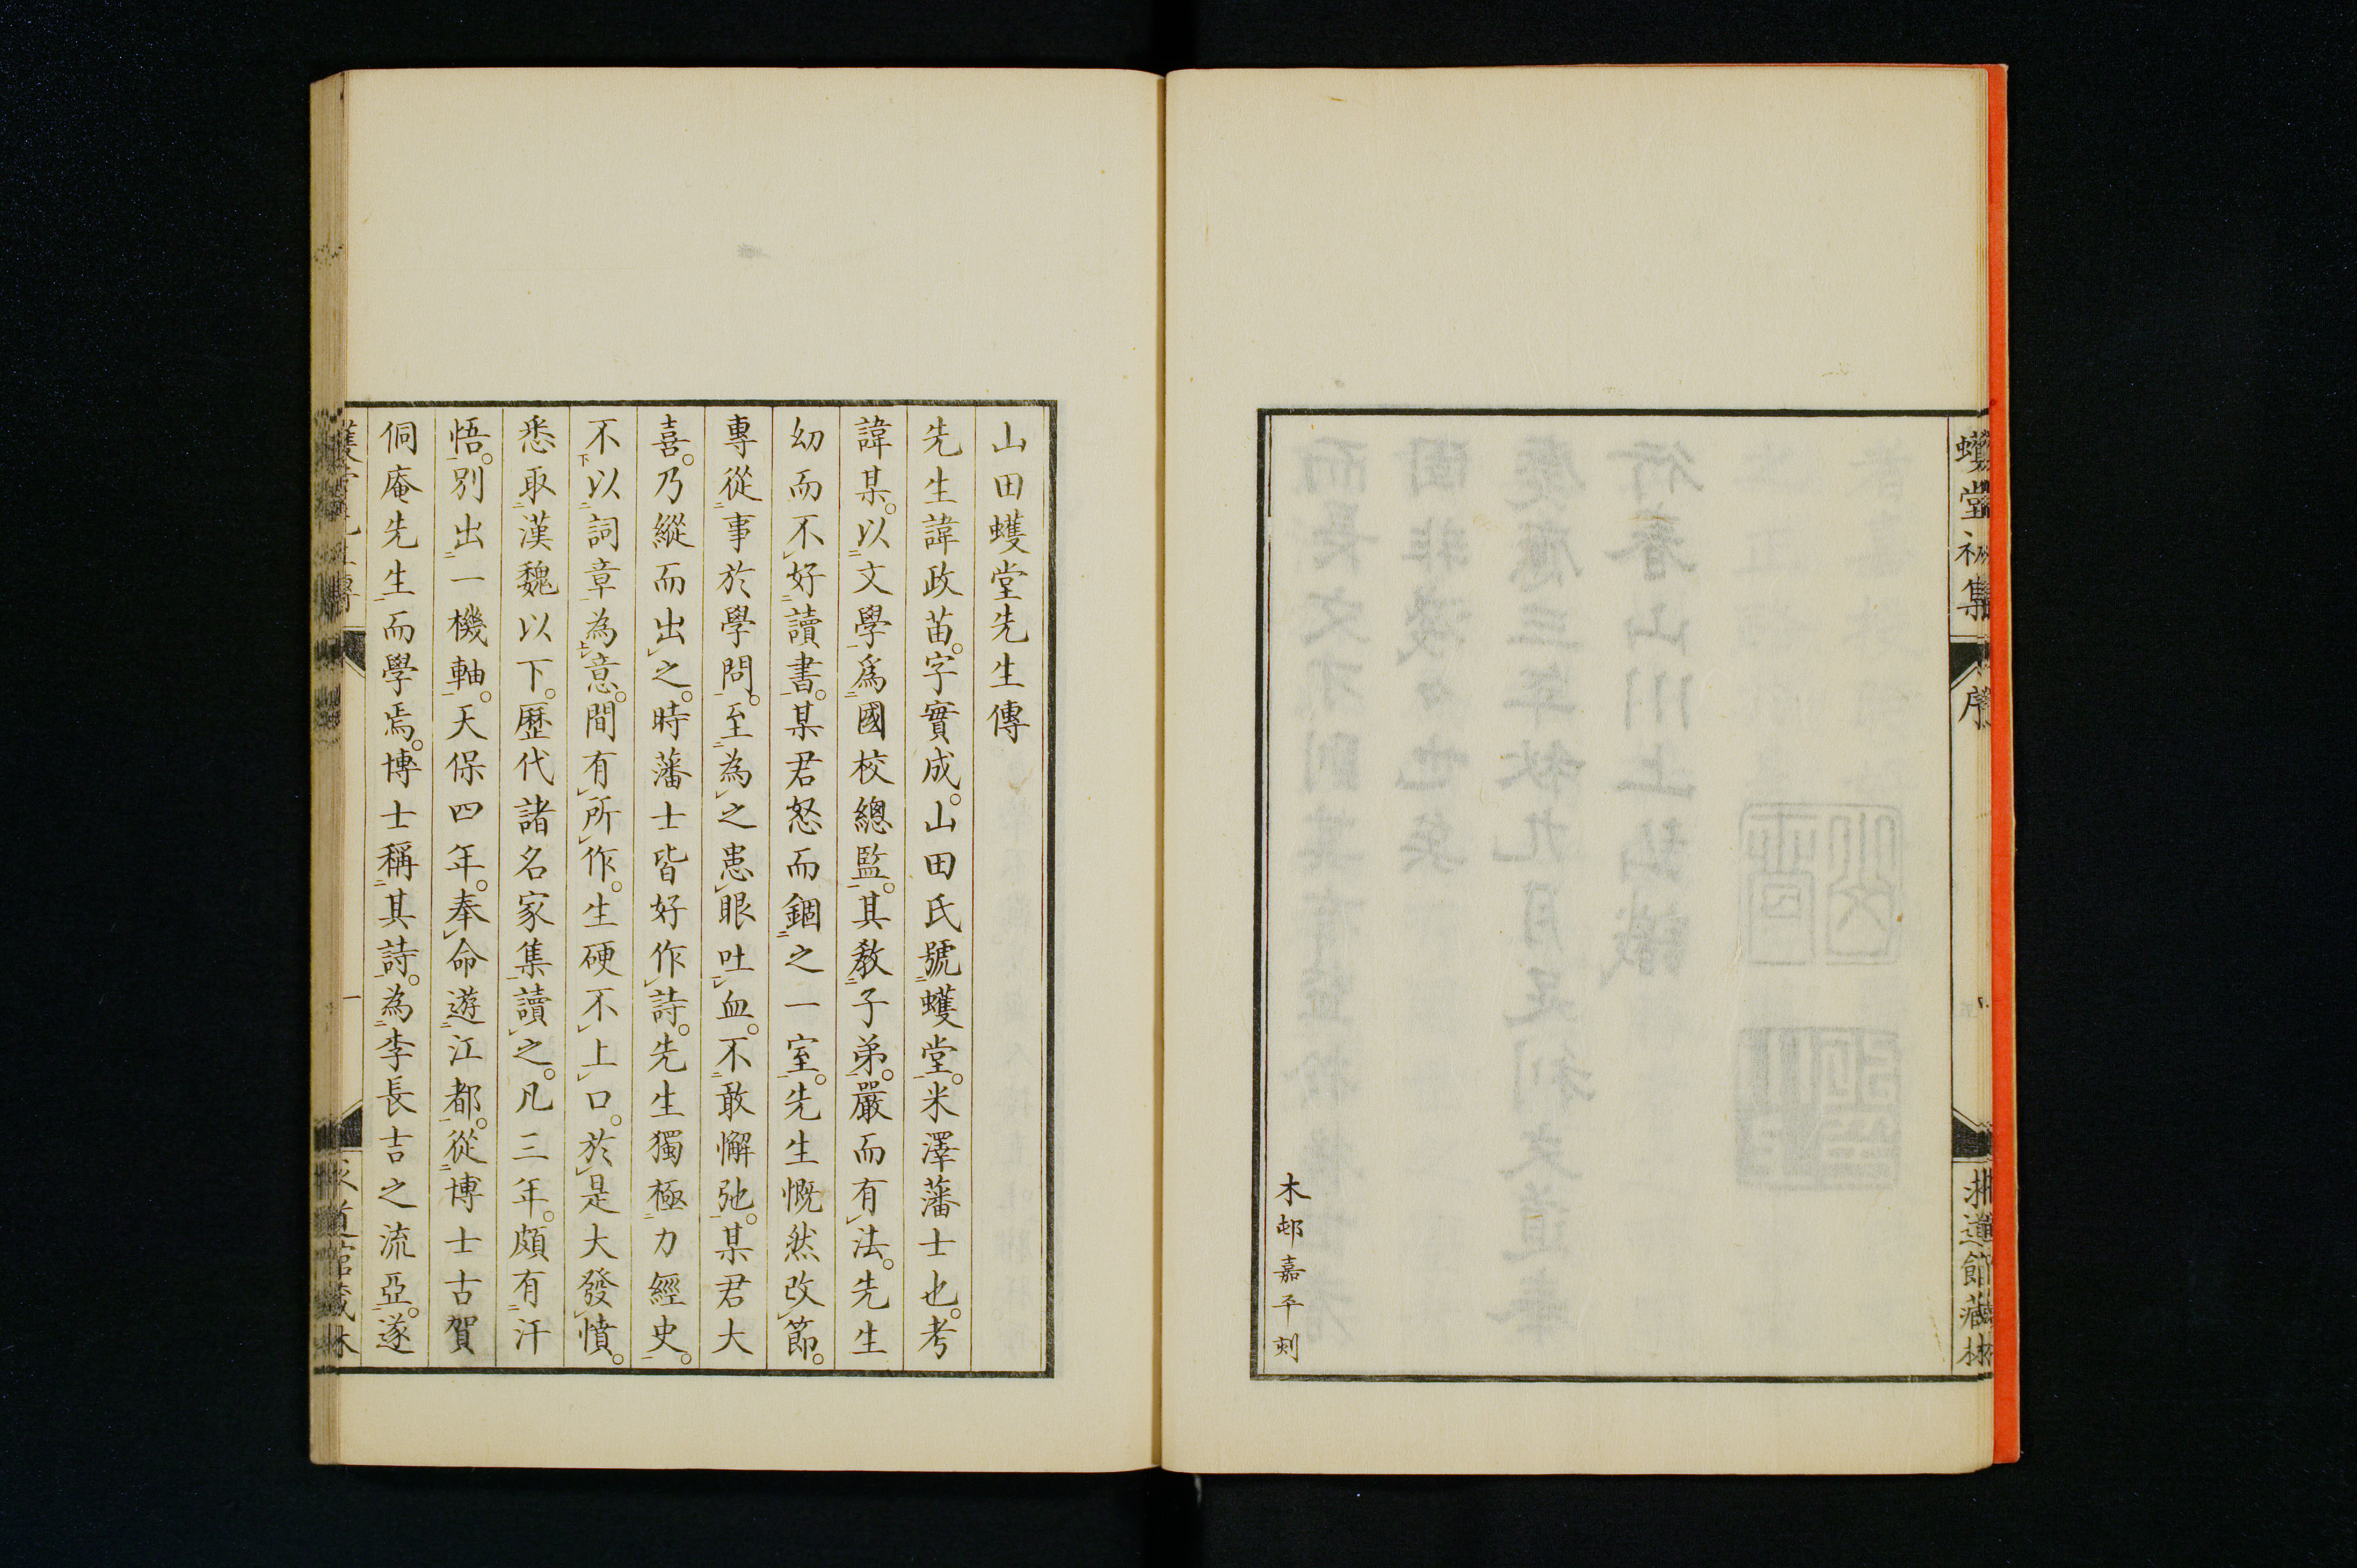 堂初集
序
木邨嘉平刻
山田蠖堂先生傳
先生諱政苗。字實成。山田氏號蠖堂。米澤藩士也。考
諱某。以文學爲國校總監。其教子弟。嚴而有法。先生
幼而不好讀書。某君怒而錮之一室。先生慨然改節。
專從事於學問。至為之患眼吐血。不敢懈弛。某君大
喜。乃縱而出之。時藩士皆好作詩。先生獨極力經史。
不以詞章為意。間有所作。生硬不上口。於是大發憤。
悉取漢魏以下。歷代諸名家集讀之。凡三年。頗有汗
悟。別出一機軸。天保四年。奉命遊江都。從博士古賀
侗庵先生而學焉。博士稱其詩。為李長吉之流亞。遂
一